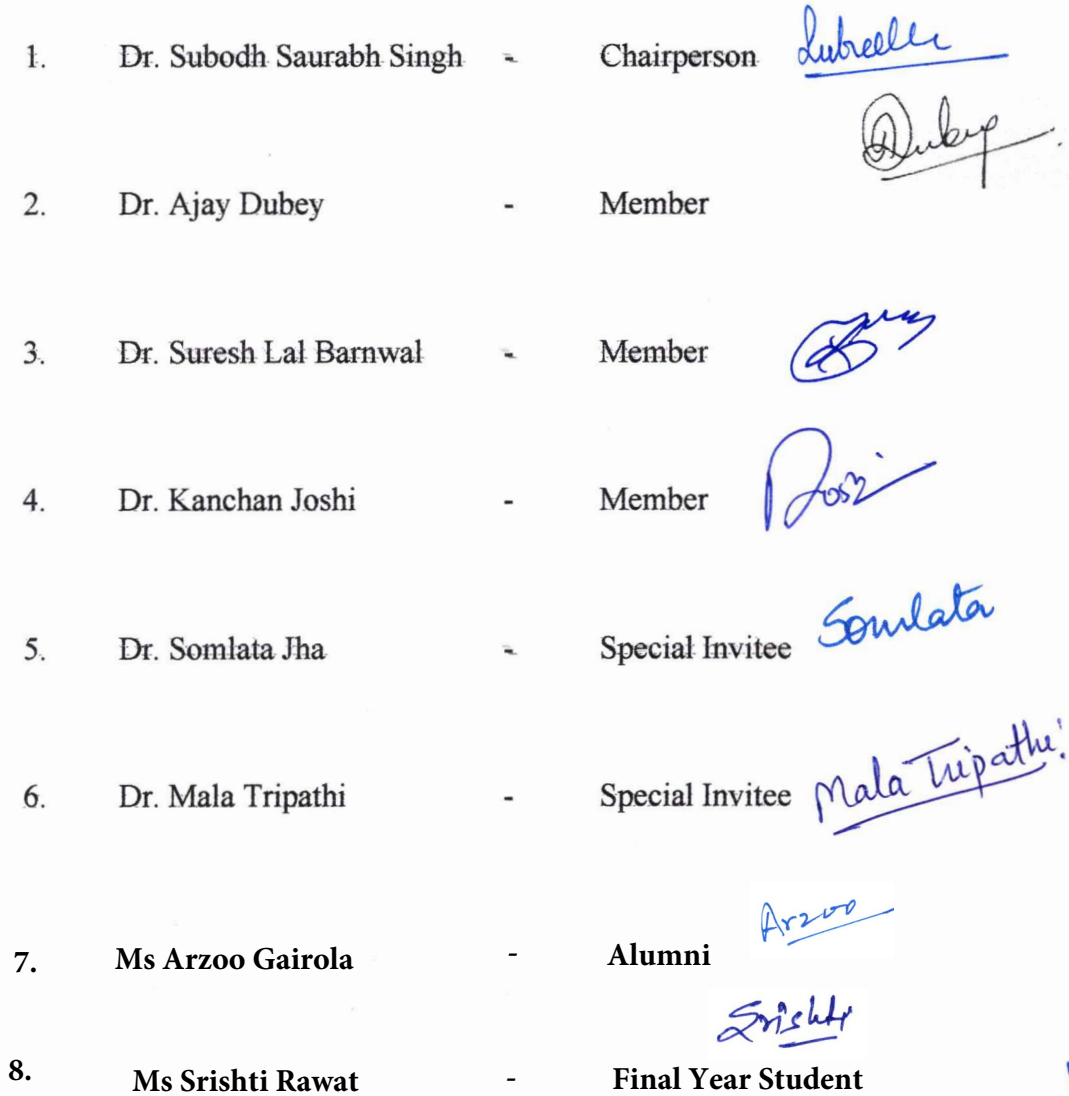 1. Dr. Subodh Saurabh Singh - Chairperson
Dubey
2. Dr. Ajay Dubey - Member
3. Dr. Suresh Lal Barnwal - Member
4. Dr. Kanchan Joshi - Member Joshi
5. Dr. Somlata Jha - Special Invitee Somlata
6. Dr. Mala Tripathi - Special Invitee Mala Tripathi
Arzoo
7. Ms Arzoo Gairola - Alumni
Srishti
8. Ms Srishti Rawat - Final Year Student